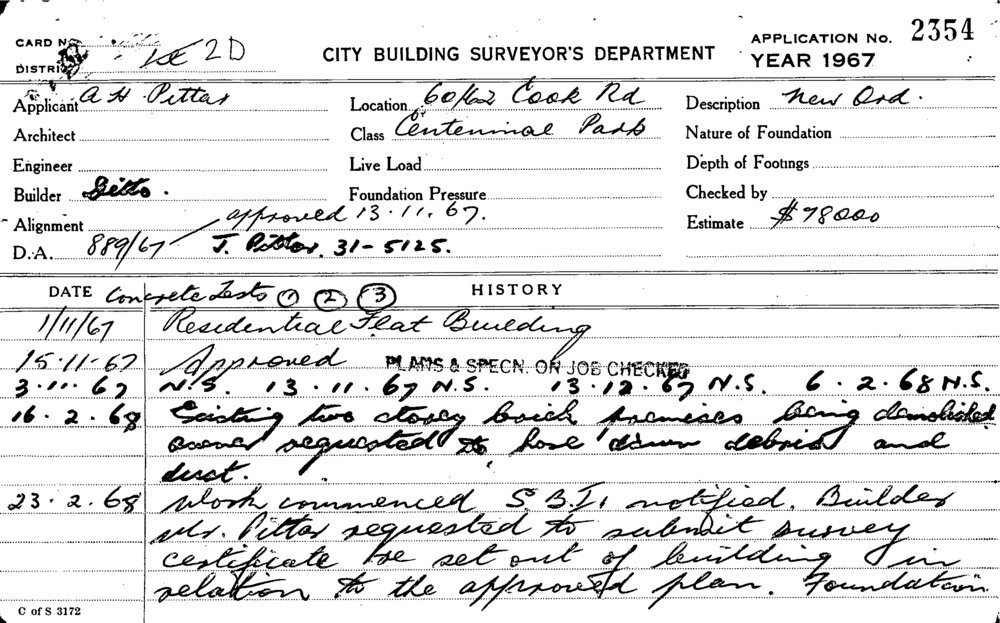 CARD No.
DISTRICT 2D
CITY BUILDING SURVEYOR'S DEPARTMENT
APPLICATION No. 2354
YEAR 1967
Applicant A H Pittar
Location 60/62 Cook Rd
Description New Ord.
Architect
Class Centennial Park
Nature of Foundation
Engineer
Live Load
Depth of Footings
Builder Ditto.
Foundation Pressure
Checked by
Alignment approved 13.11.67.
Estimate $78000
D.A. 889/67 J. Pittar. 31-5125.
DATE Concrete Tests 1 2 3 HISTORY
1/11/67 Residential Flat Building
15.11.67 Approved PLANS & SPECN. ON JOB CHECKED
3.11.67 N.S. 13.11.67 N.S. 13.12.67 N.S. 6.2.68 N.S.
16.2.68 Existing two storey brick premises being demolished
owner requested to hose down debris and
dust.
23.2.68 Work commenced S.B.I. notified. Builder
Mr. Pittar requested to submit survey
certificate re set out of building in
relation to the approved plan. Foundation
C of S 3172